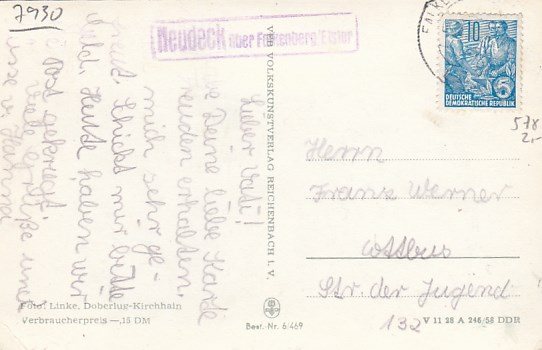 7930
Neudeck über Falkenberg/Elster
10
DEUTSCHE
DEMOKRATISCHE REPUBLIK
578
2,-
Lieber Vati!
Deine liebe Karte
erhalten.
mich sehr ge-
Schickt mir bitte
Geld. Heute haben wir
Post gekriegt.
Viele Grüße und
VEB VOLKSKUNSTVERLAG REICHENBACH I. V.
Herrn
Franz Werner
Cottbus
Str. der Jugend
132
Foto: Linke, Doberlug-Kirchhain
Verbraucherpreis —,15 DM
Best.-Nr. 6/469
V 11 28 A 246/58 DDR